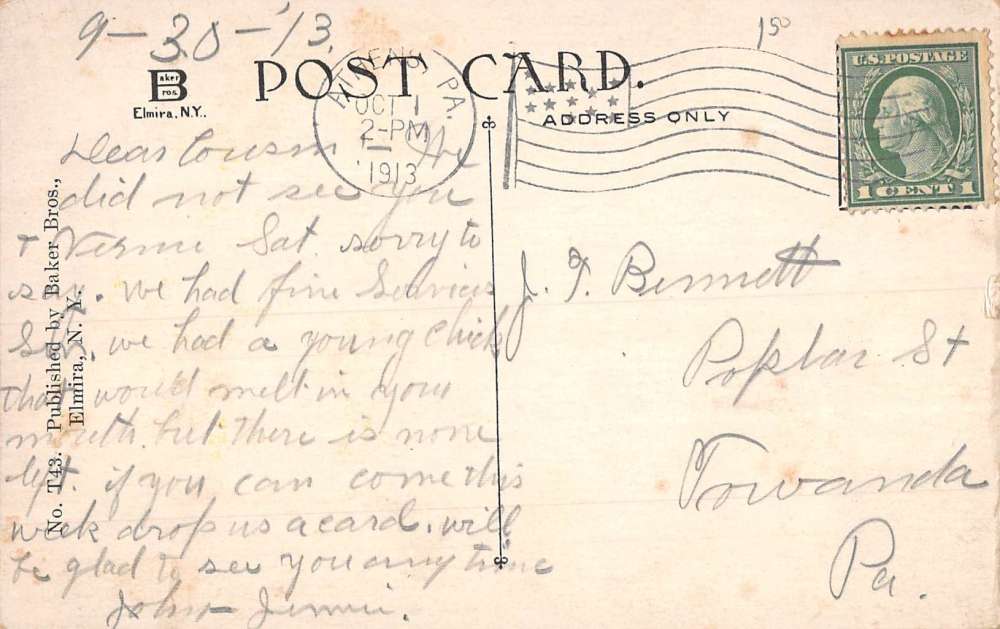 9-30-'13
1.50
Baker Bros.
Elmira, N.Y.
POST CARD.
ADDRESS ONLY
ATHENS, PA.
OCT 1
2-PM
1913
U.S. POSTAGE
1 CENT 1
Dear Cousin We
did not see you
+ Sat. sorry to
say. we had fine Services
we had a young chick
that would melt in your
mouth but there is none
left. if you can come this
week drop us a card. will
be glad to see you any time
John + Jennie.
J. F. Bennett
Poplar St
Towanda
Pa.
No. T43. Published by Baker Bros.,
Elmira, N. Y.